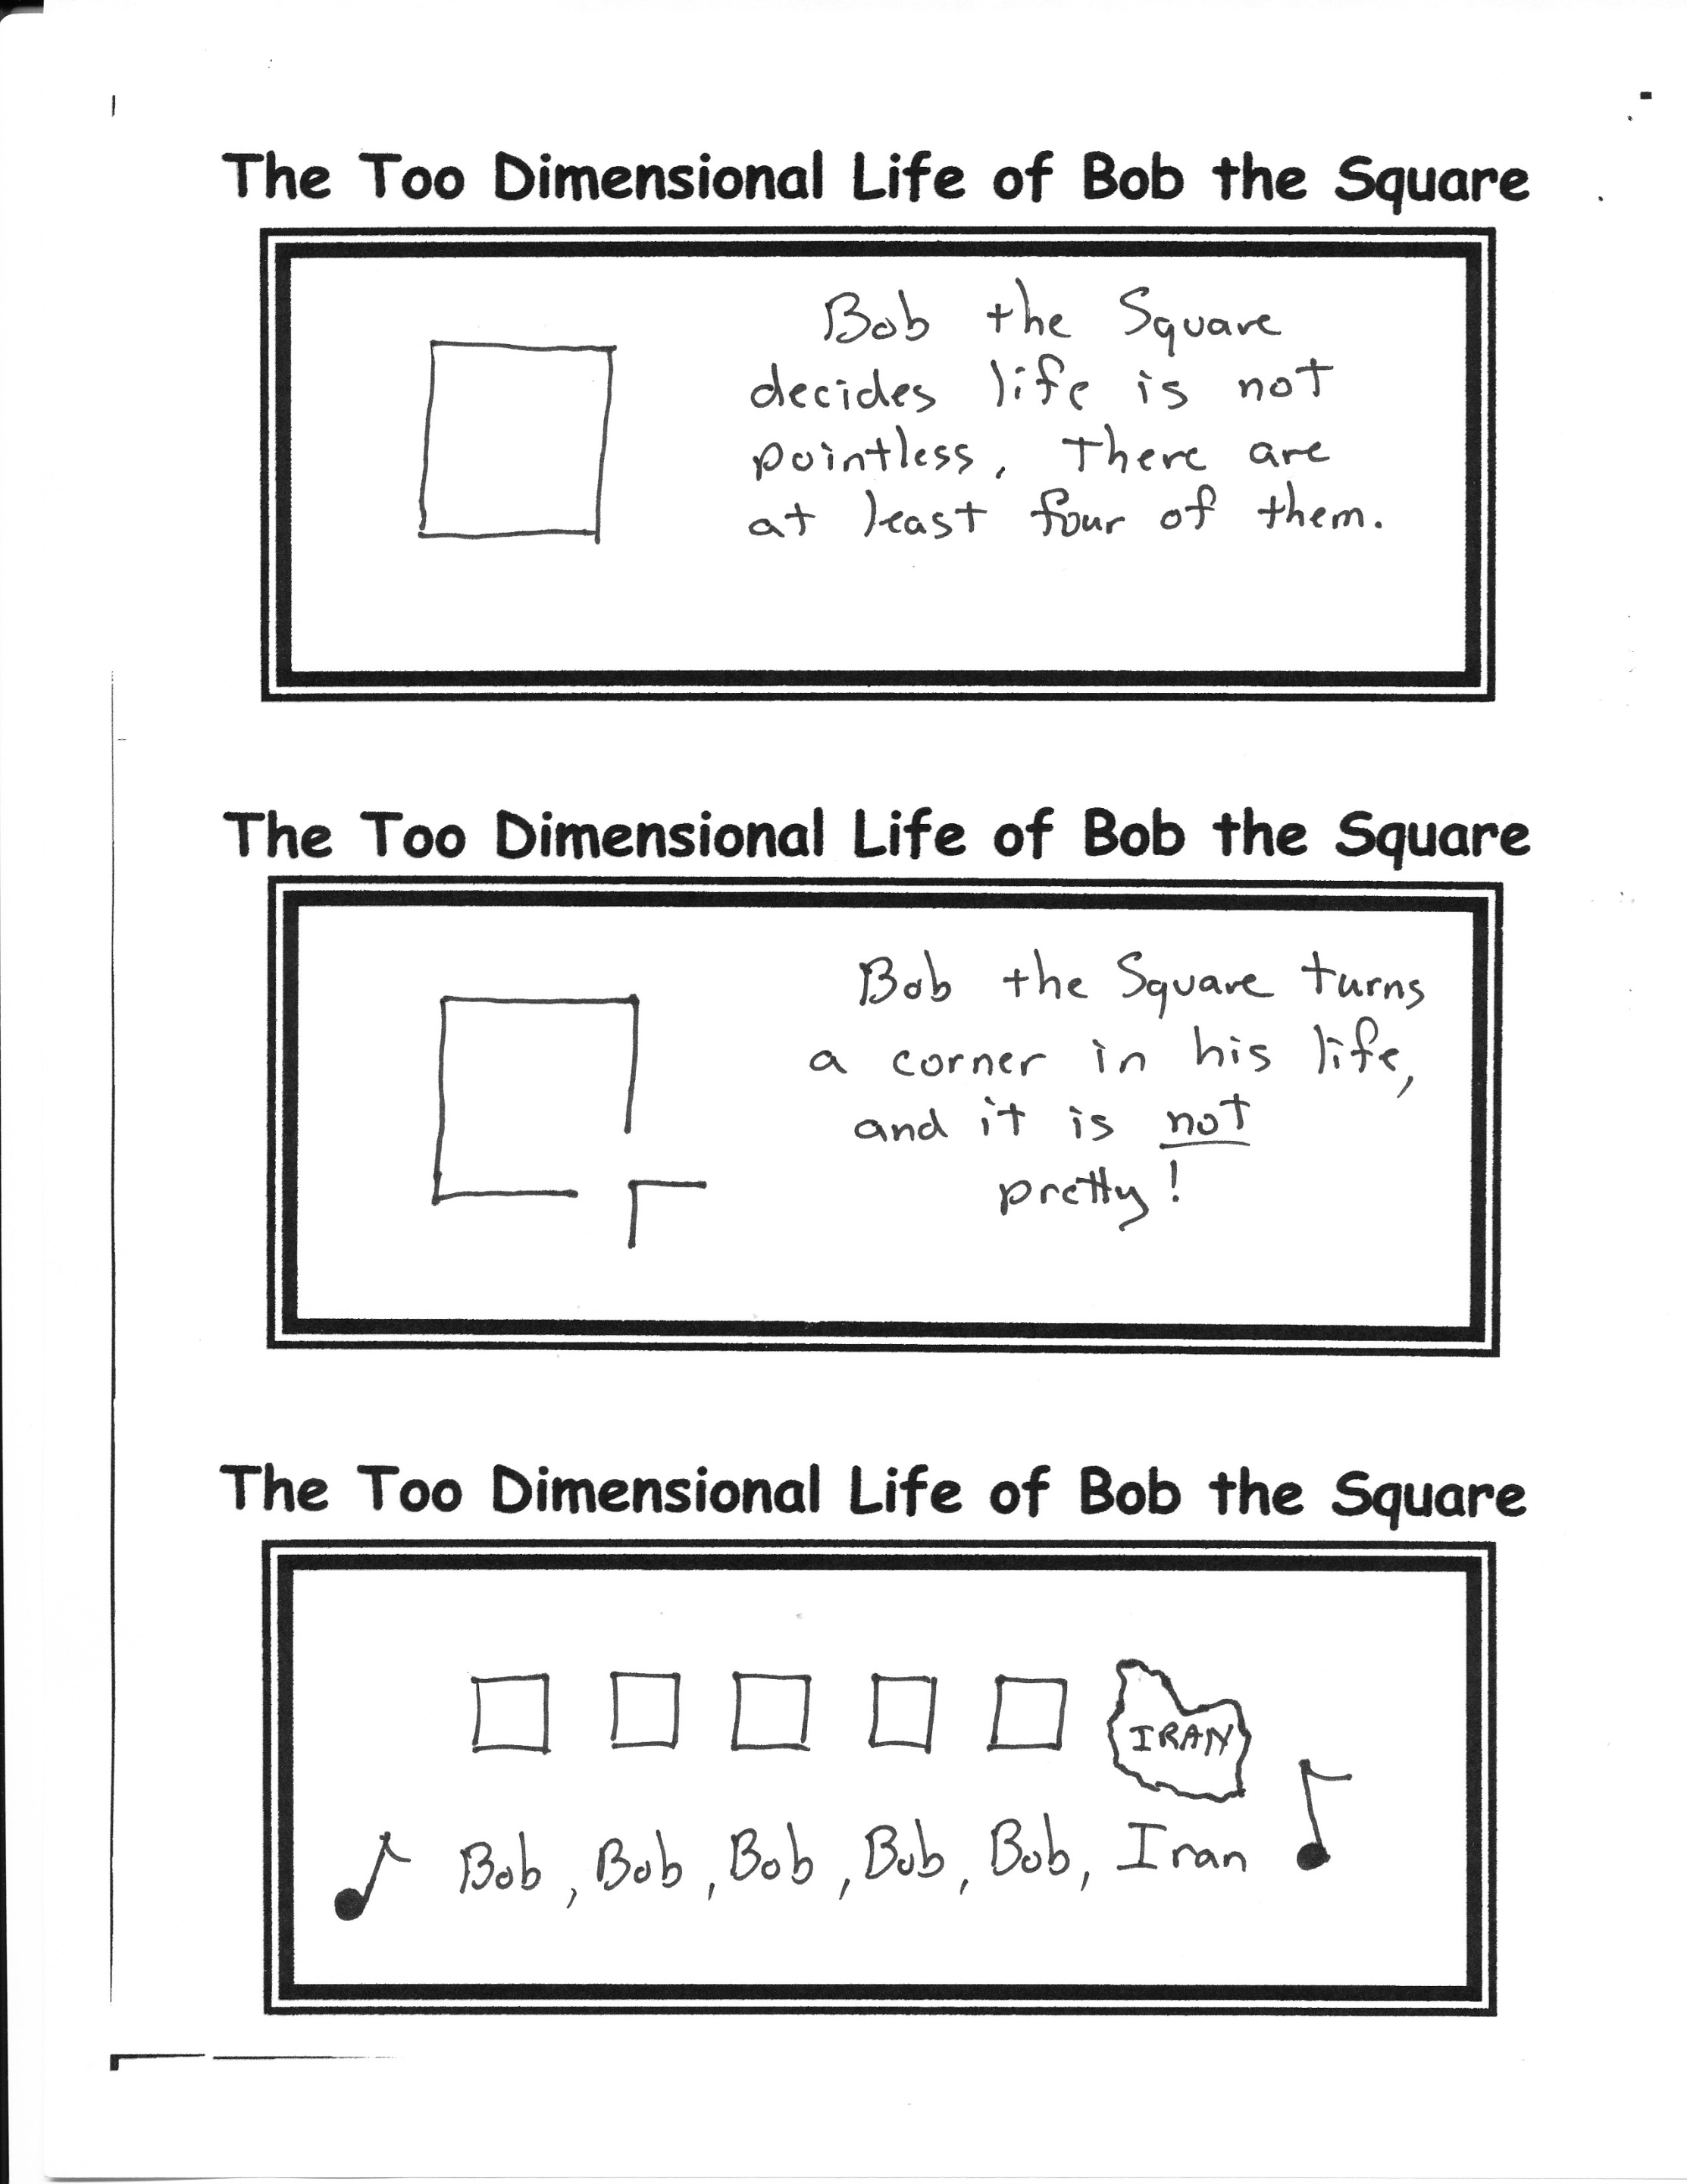 The Too Dimensional Life of Bob the Square
Bob the Square
decides life is not
pointless. There are
at least four of them.
The Too Dimensional Life of Bob the Square
Bob the Square turns
a corner in his life,
and it is not
pretty!
The Too Dimensional Life of Bob the Square
IRAN
Bob, Bob, Bob, Bob, Bob, Iran